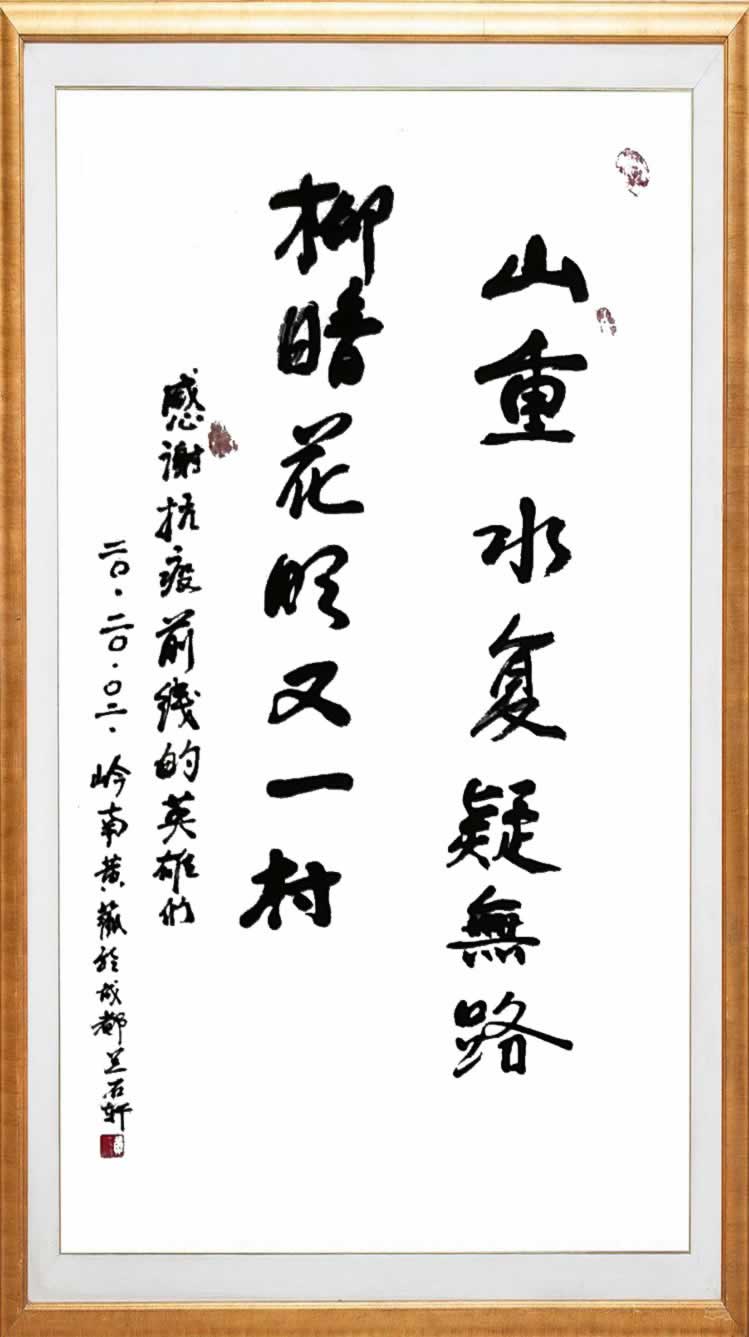 山重水复疑無路
柳暗花明又一村
感谢抗疫前线的英雄们
二〇·二〇·〇二·岭南黄於成都兰石轩